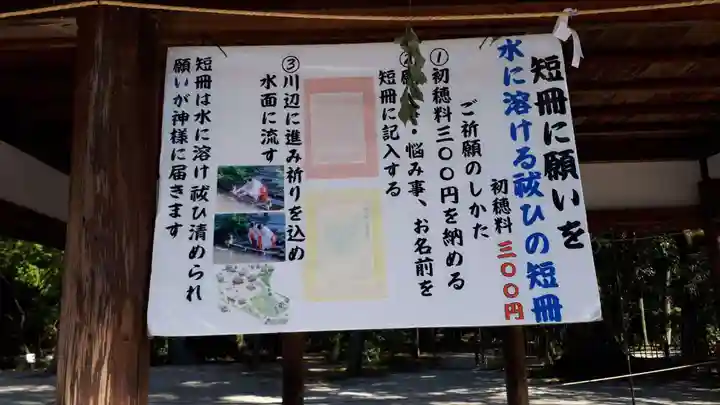 短冊に願いを
水に溶ける祓ひの短冊
初穂料 三〇〇円
ご祈願のしかた
①初穂料三〇〇円を納める
・悩み事、お名前を
短冊に記入する
③川辺に進み祈りを込め
水面に流す
短冊は水に溶け祓ひ清められ
願いが神様に届きます